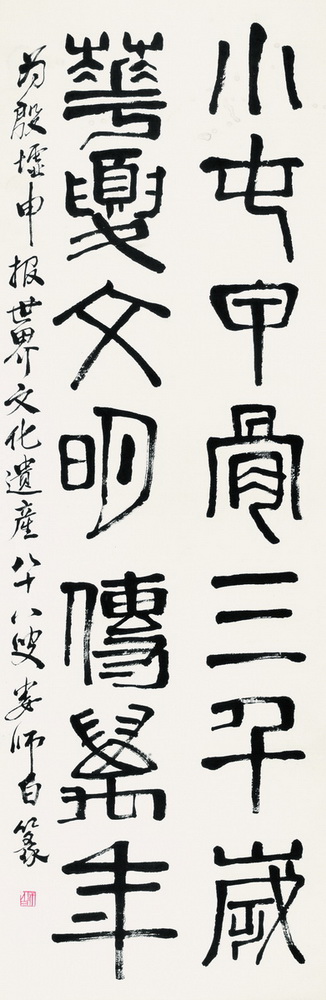 小屯甲骨三千歲
華夏文明傳萬年
为殷墟申报世界文化遺產八十八叟娄师白篆